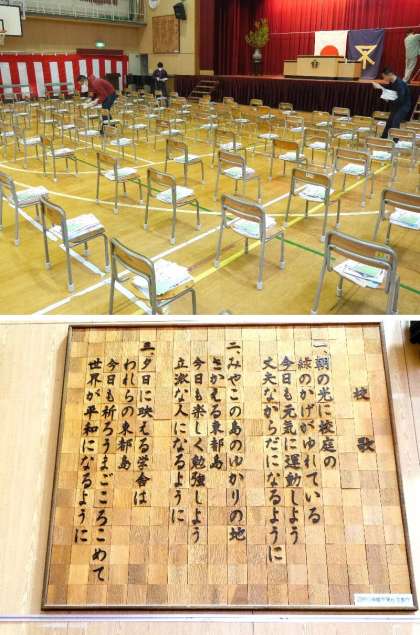 校歌
一、朝の光に校庭の
緑のかげがゆれている
今日も元気に運動しよう
丈夫なからだになるように
二、みやこの島のゆかりの地
さかえる東都島
今日も楽しく勉強しよう
立派な人になるように
三、夕日に映える学舎は
われらの東都島
今日も祈ろうまごころこめて
世界が平和になるように